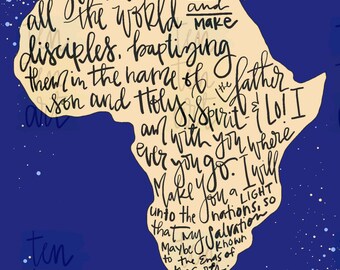 all the world and
make
disciples, baptizing
them in the name of the father
son and Holy spirit - & Lo! I
am with you where
ever you go. I will
Make you a LIGHT
unto the nations, so
that my salvation
Maybe known
to the Ends of
ten